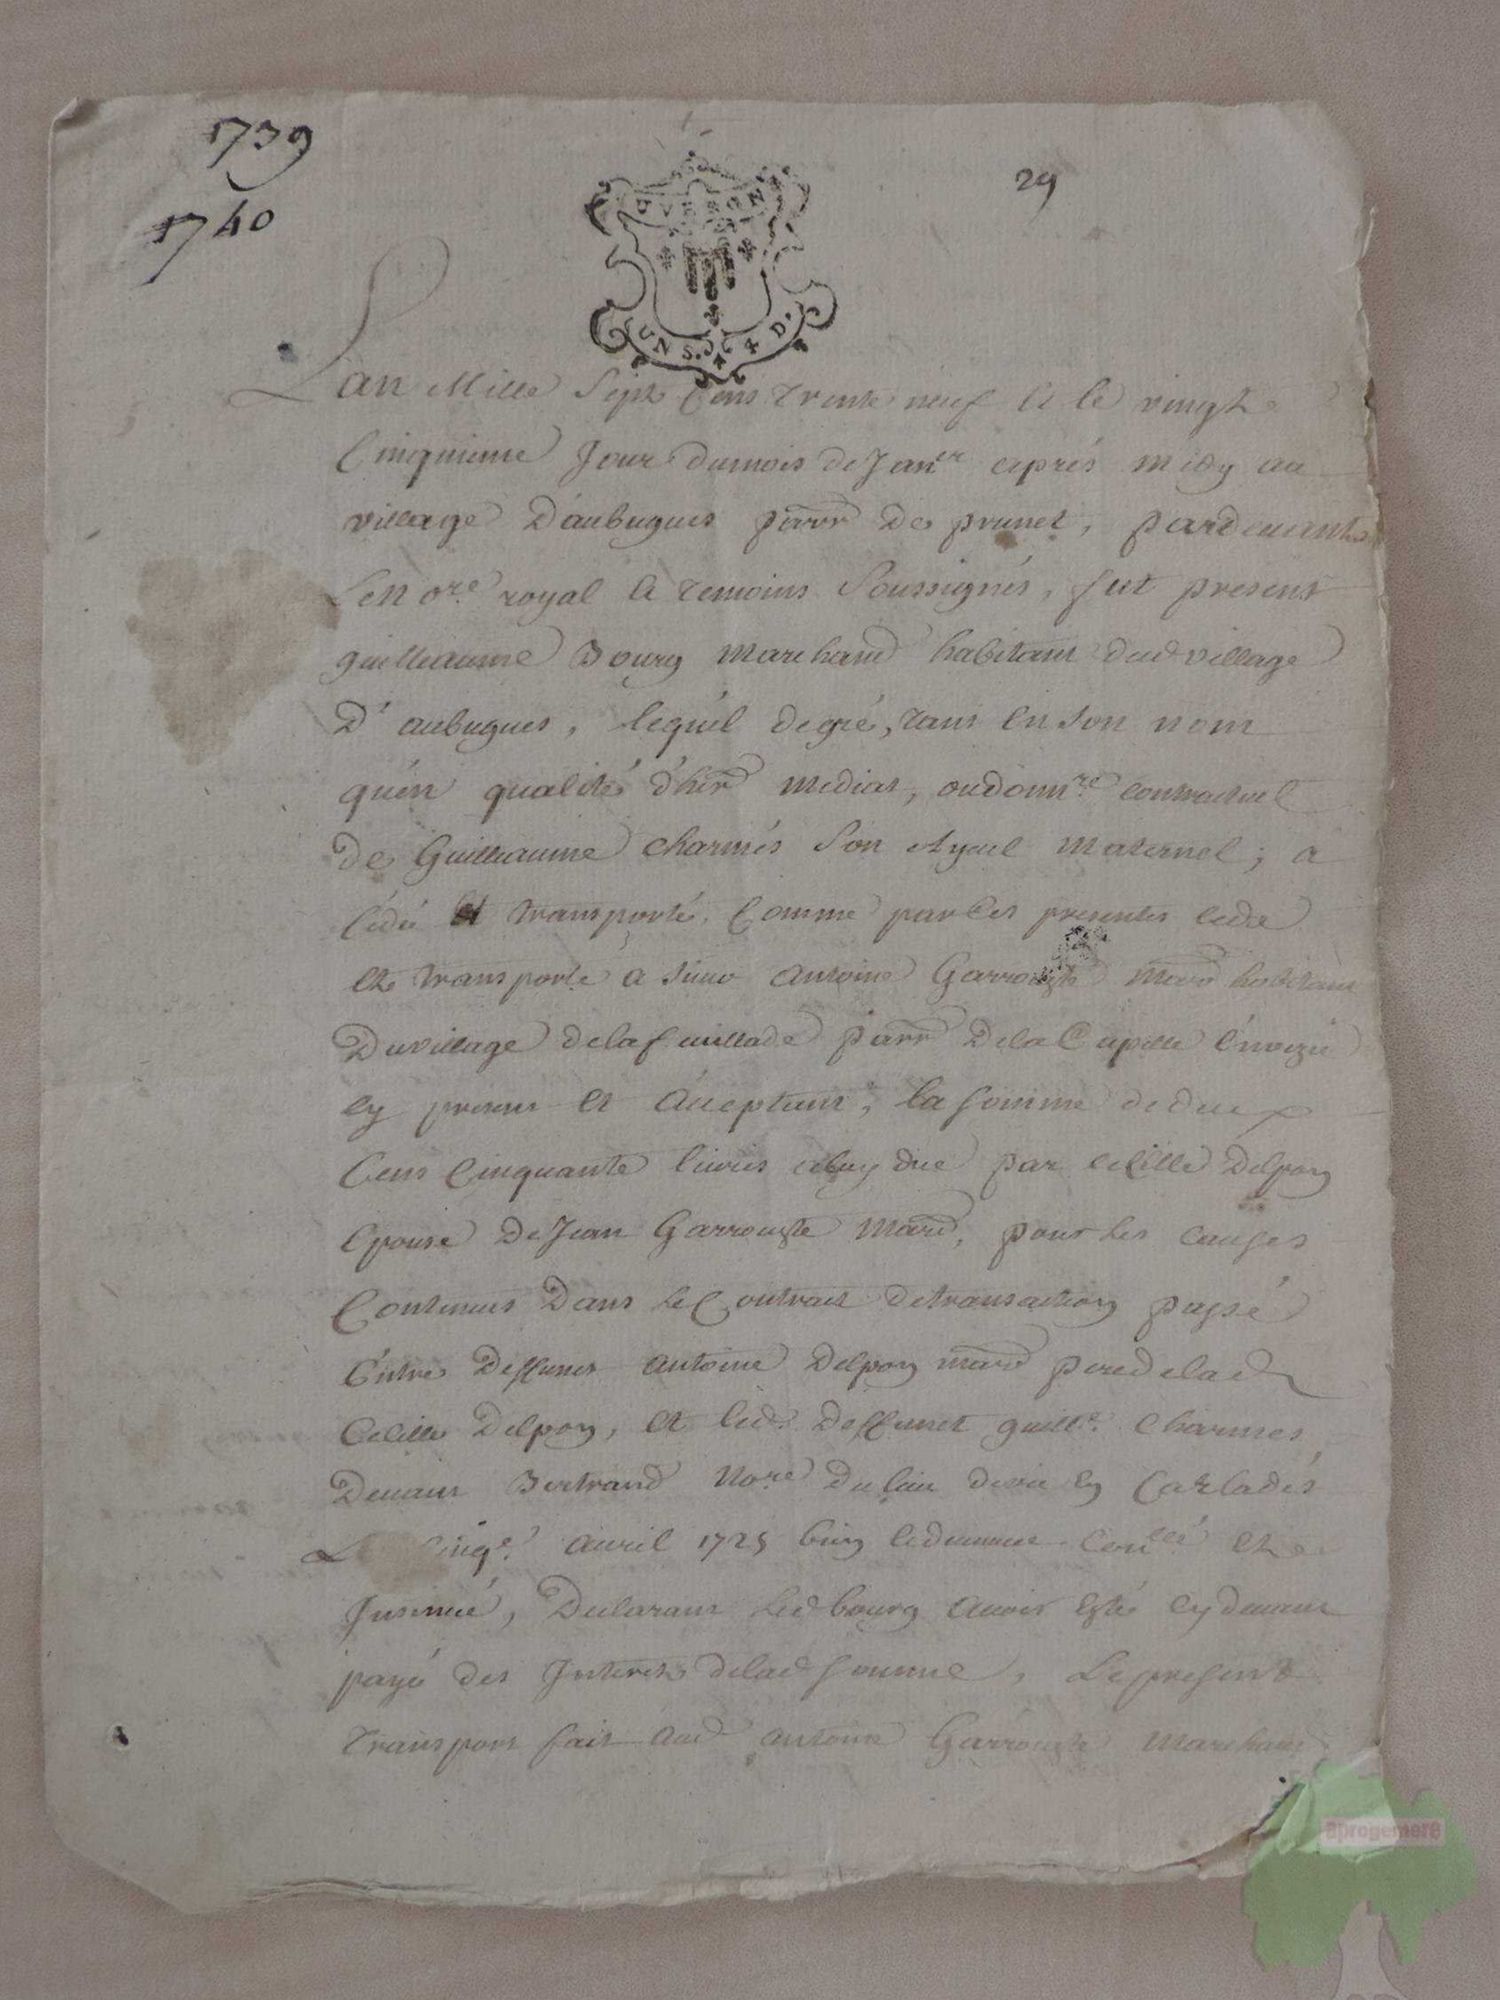 1739
1740
29
UVERGN
UN S. 4 D.
Lan Mille Sept Cens trente neuf et le vingt
Cinquieme Jour dumois de Janer aprés midy au
village D'aubugues parr De prunet, pardeuant
Le Nore royal et temoins Soussignés, fut present
guilleaume Bourg Marchand habitant dud village
D'aubugues, lequel degré, tant En Son nom
qu'en qualité d'her mediat, ou donre contractuel
De Guilleaume Charmes Son Ayeul maternel; a
Cédé et transporté, Comme par Ces presentes cede
et transporte a Antoine Garrouste Mard habitant
Du village delafeuillade parr De la Capelle Enuezie
Cy present et Acceptant, la somme de deux
Cens Cinquante liures a luy due par Cecille Delpon
Epouse De Jean Garrouste Mard, pour les causes
Contenues Dans le Contrait de transaction passé
Entre Deffunct Antoine Delpon mard pere delad
Cecille Delpon, et led. Deffunct guille. Charmes
Deuant Bertrand Nore Du lieu de vic En Carladés
Le Cinqe. Auril 1725 bien Conllé Et
Insinué, Declarant led bourg Auoir Esté Cy deuant
payé des Interets delad somme, Le present
transport fait aud Antoine Garrouste Marchand
aprogemere